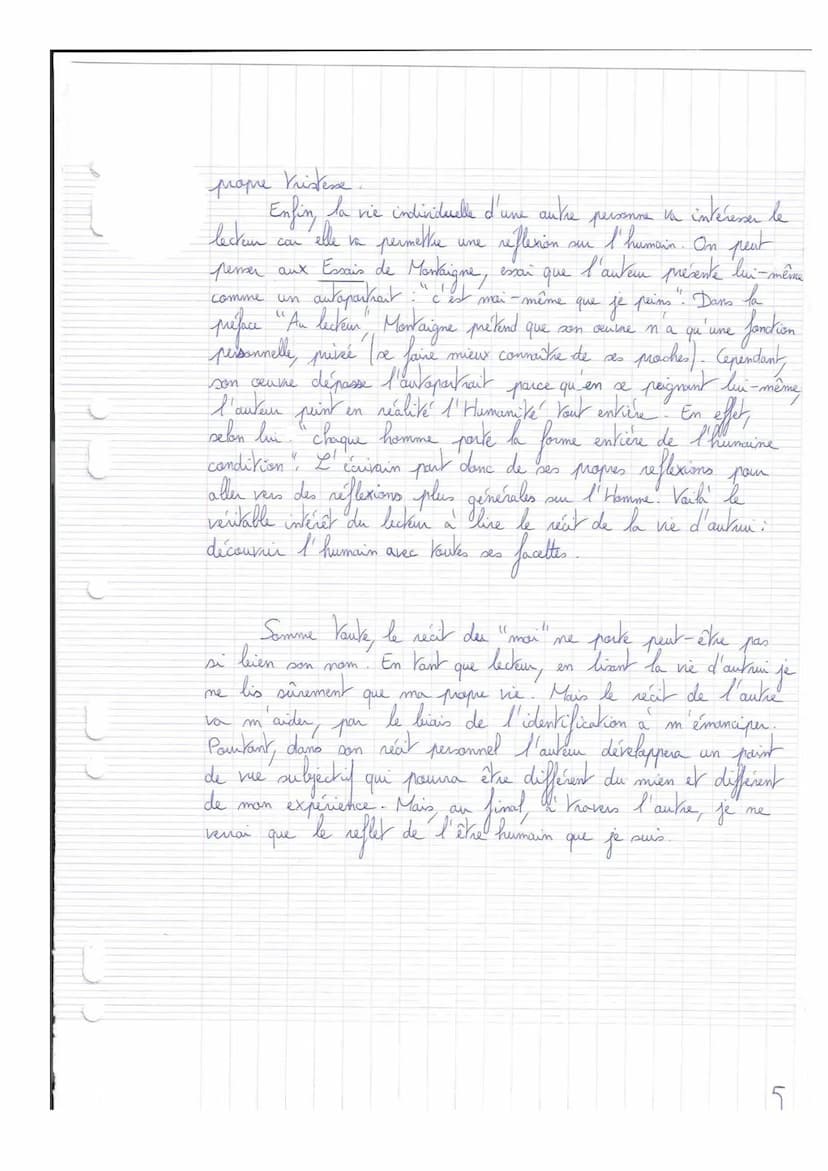 propre tristesse.
Enfin, la vie individuelle d'une autre personne va intéresser le
lecteur car elle va permettre une réflexion sur l'humain. On peut
penser aux Essais de Montaigne, essai que l'auteur présente lui-même
comme un autoportrait : "c'est moi-même que je peins". Dans la
préface "Au lecteur", Montaigne prétend que son œuvre n'a qu'une fonction
personnelle, privée (se faire mieux connaître de ses proches). Cependant,
son œuvre dépasse l'autoportrait parce qu'en se peignant lui-même,
l'auteur peint en réalité l'Humanité tout entière. En effet,
selon lui : "chaque homme porte la forme entière de l'humaine
condition". L'écrivain part donc de ses propres réflexions pour
aller vers des réflexions plus générales sur l'Homme. Voilà le
véritable intérêt du lecteur à lire le récit de la vie d'autrui :
découvrir l'humain avec toutes ses facettes.
Somme toute, le récit du "moi" ne porte peut-être pas
si bien son nom. En tant que lecteur, en lisant la vie d'autrui je
ne lis sûrement que ma propre vie. Mais le récit de l'autre
va m'aider, par le biais de l'identification à m'émanciper.
Pourtant, dans son récit personnel l'auteur développera un point
de vue subjectif qui pourra être différent du mien et différent
de mon expérience. Mais, au final, à travers l'autre, je ne
verrai que le reflet de l'être humain que je suis.
5